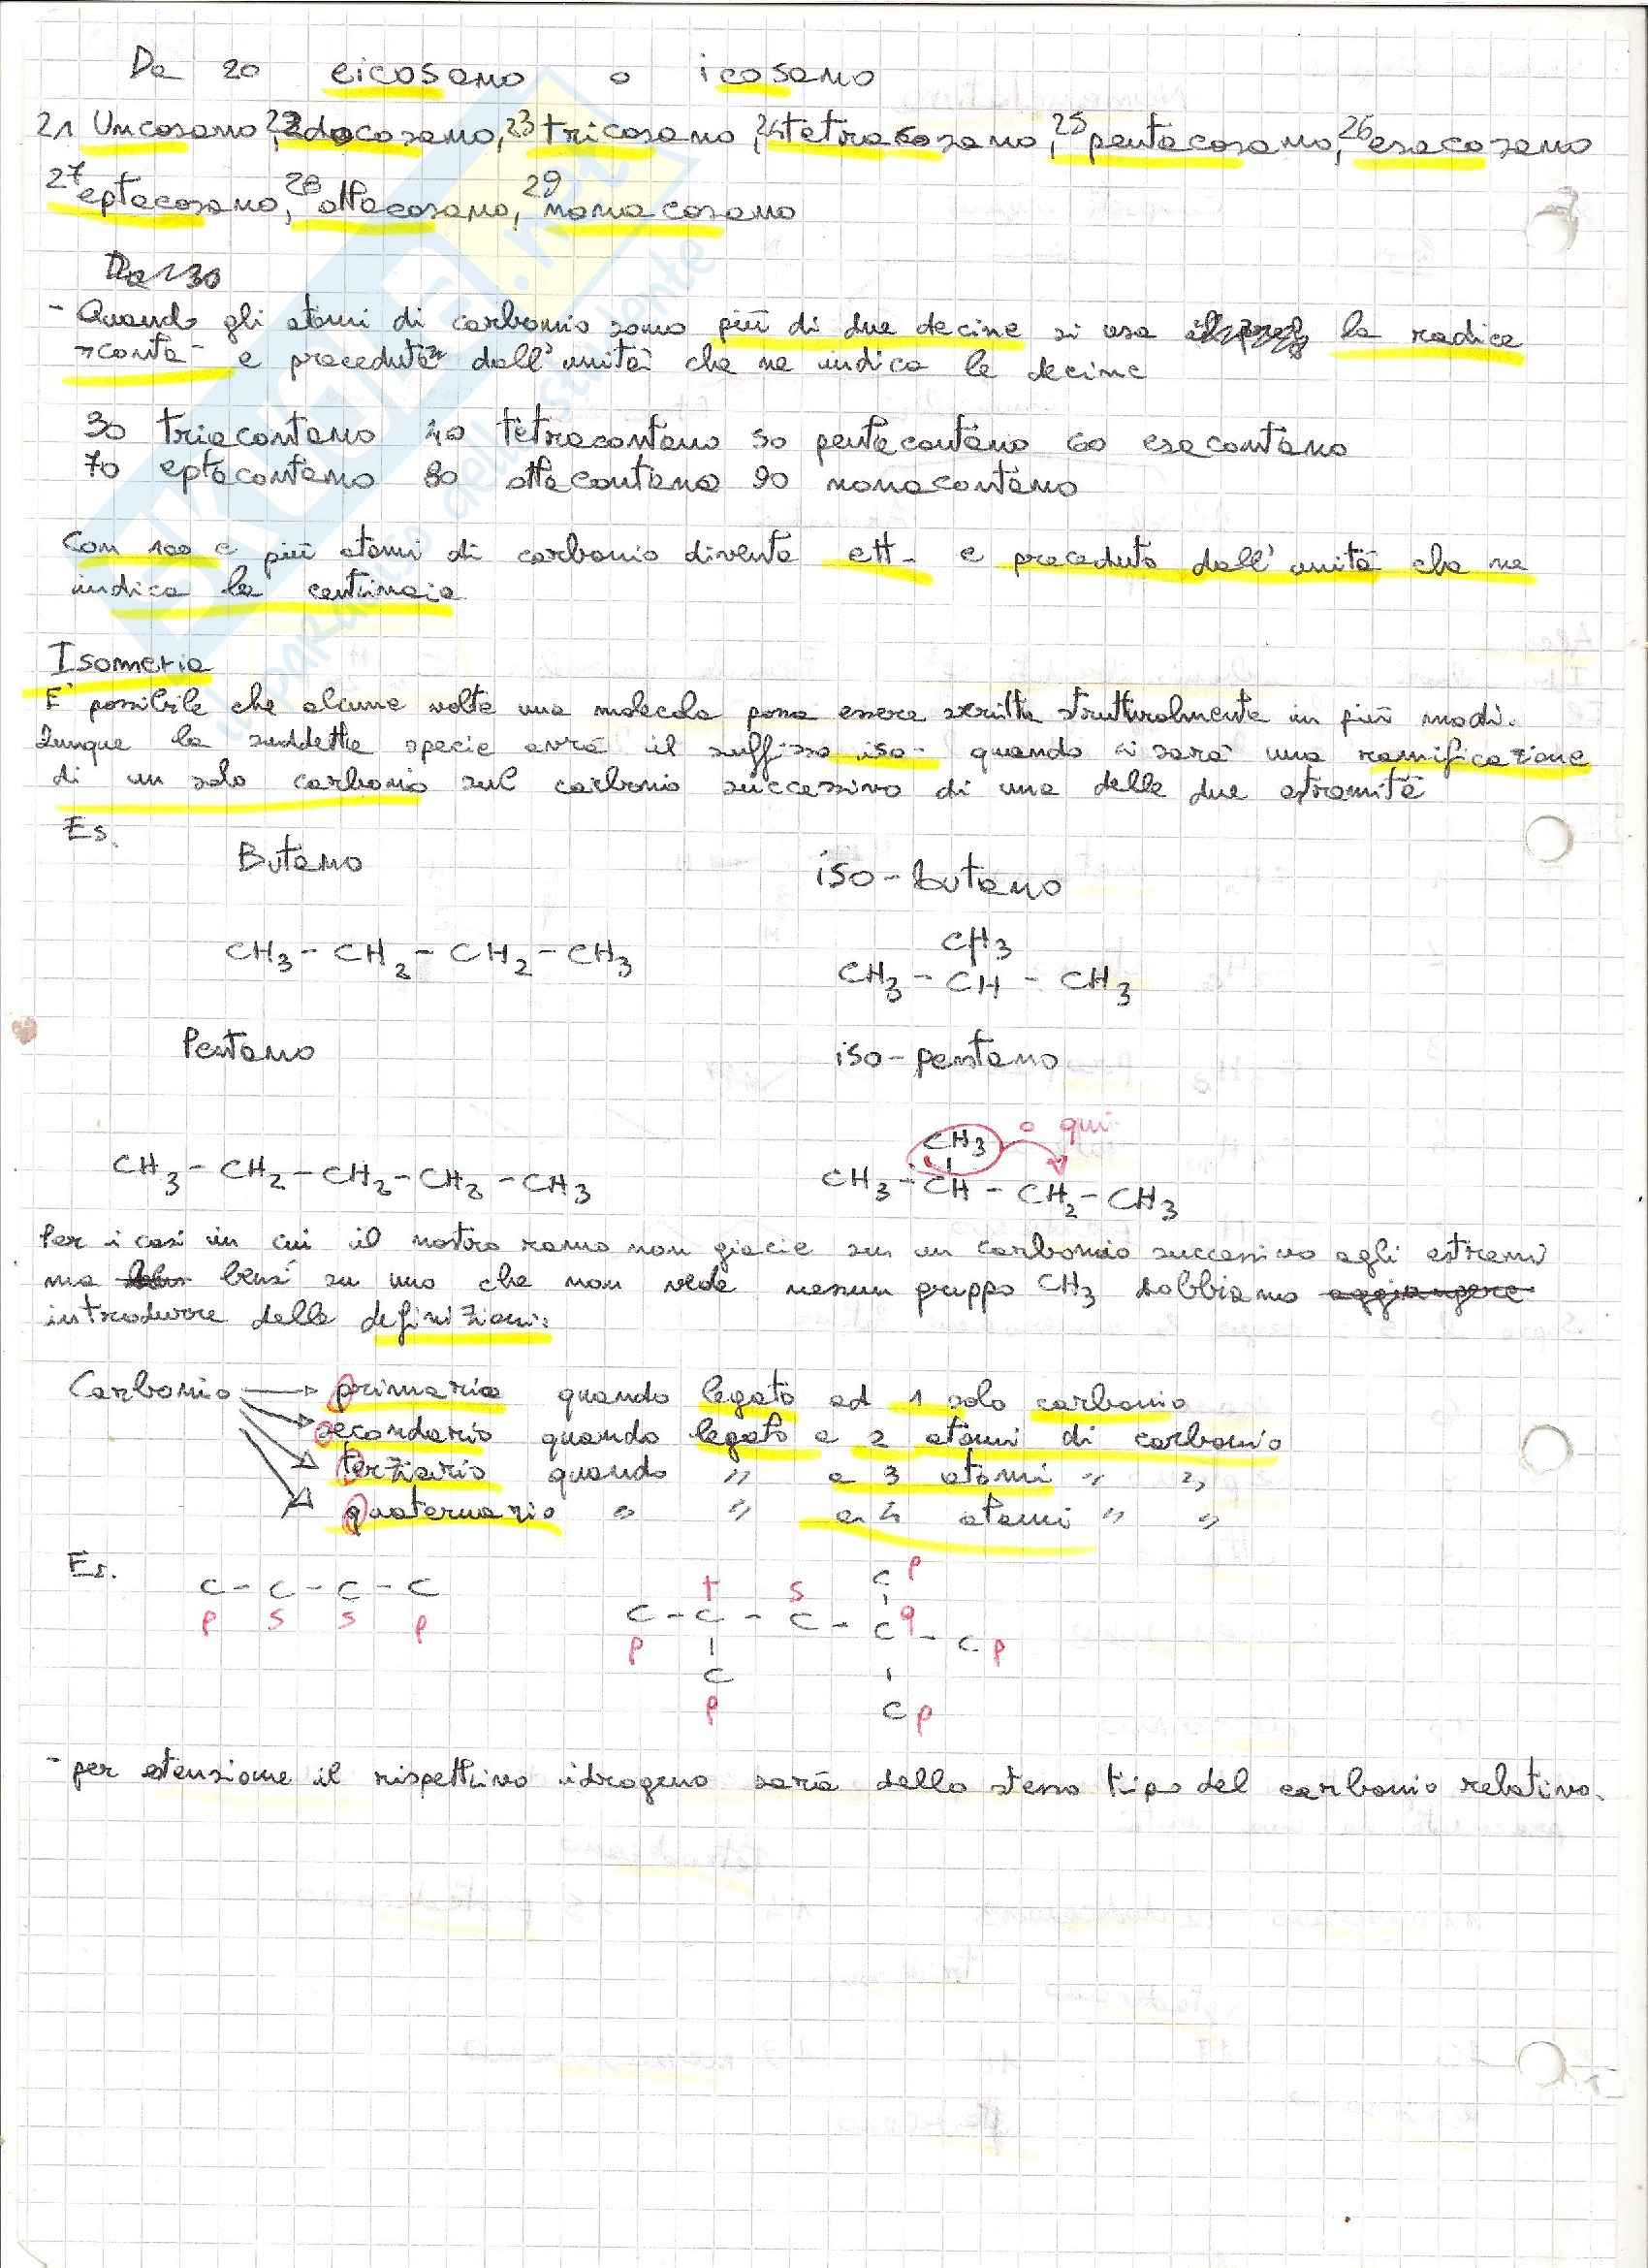 Da 20 eicosano o icosano
21 Uncosano, 22 docosano, 23 tricosano, 24 tetracosano, 25 pentacosano, 26 esacosano
27 eptacosano, 28 ottacosano, 29 nonacosano
Da 30
- Quando gli atomi di carbonio sono più di due decine si usa la radice
-conta- e preceduta dall'unità che ne indica le decine
30 triacontano 40 tetracontano 50 pentacontano 60 esacontano
70 eptacontano 80 ottacontano 90 nonacontano
Con 100 e più atomi di carbonio diventa ett- e preceduto dall'unità che ne
indica le centinaia
Isomeria
E' possibile che alcune volte una molecola possa essere scritta strutturalmente in più modi.
Dunque la suddetta specie avrà il suffisso iso- quando ci sarà una ramificazione
di un solo carbonio sul carbonio successivo di una delle due estremità
Es.
Butano iso-butano
CH3
CH3 - CH2 - CH2 - CH3 CH3 - CH - CH3
Pentano iso-pentano
CH3 o qui
CH3 - CH2 - CH2 - CH2 - CH3 CH3 - CH - CH2 - CH3
Per i casi in cui il nostro ramo non giacie su un carbonio successivo agli estremi
ma bensì su uno che non vede nessun gruppo CH3 dobbiamo aggiungere
introdurre delle definizioni:
Carbonio → primario quando legato ad 1 solo carbonio
secondario quando legato a 2 atomi di carbonio
terziario quando " a 3 atomi " "
quaternario " " a 4 atomi " "
Es.
C p
t s
C - C - C - C C - C - C - C q - C p
p s s p p
C C p
p
- per estensione il rispettivo idrogeno sarà dello stesso tipo del carbonio relativo.